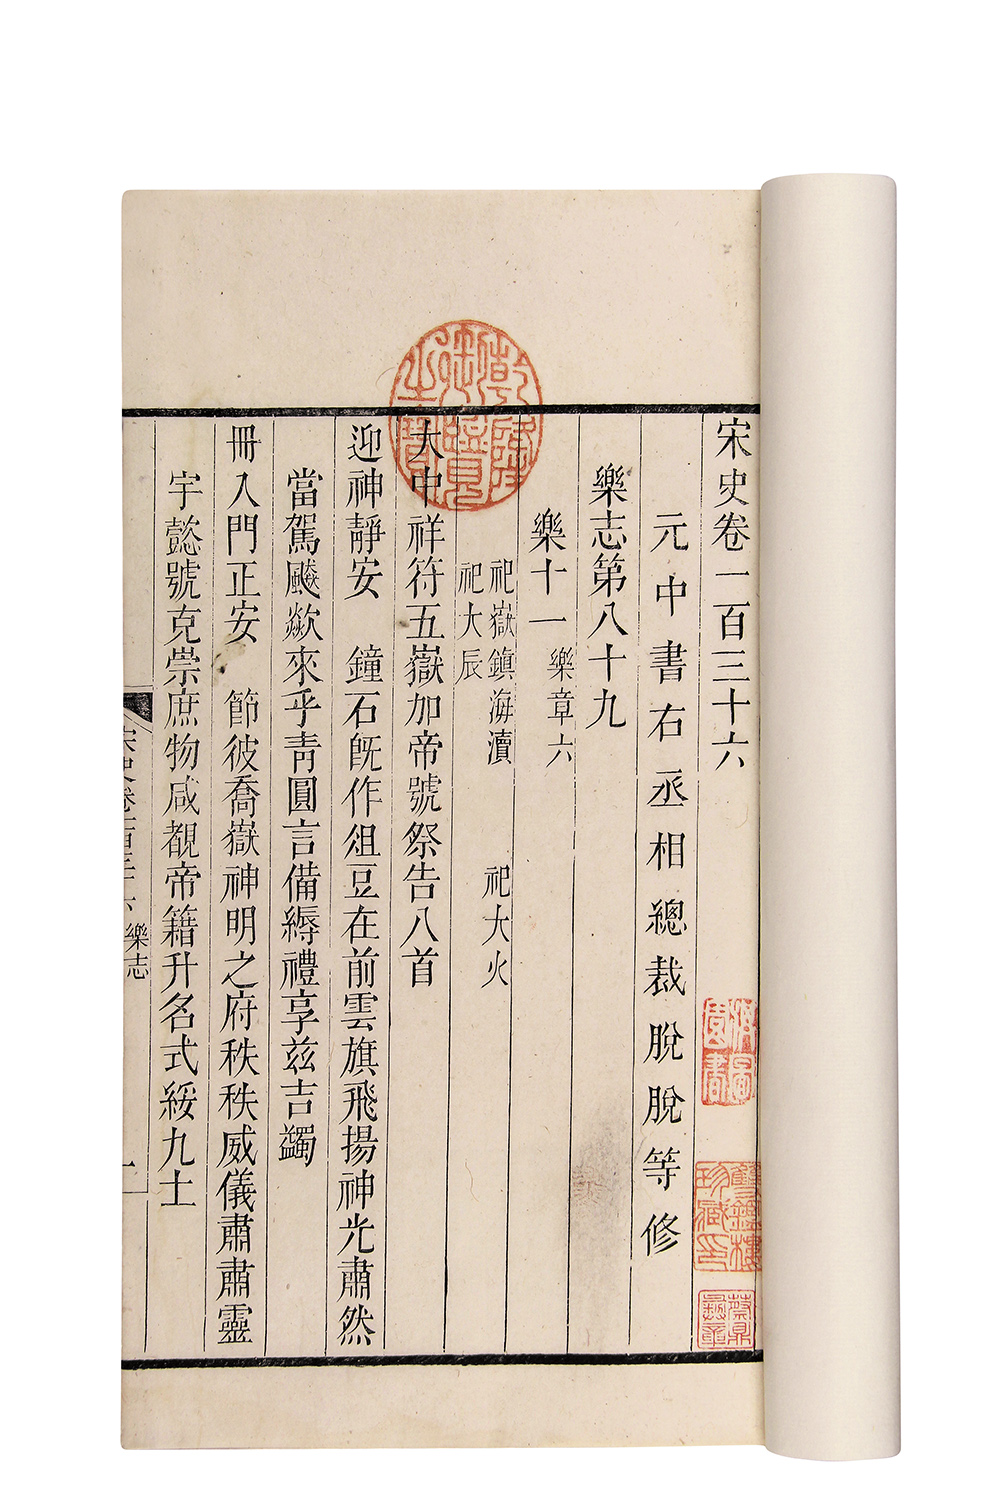 宋史卷一百三十六
元中書右丞相總裁脫脫等修
樂志第八十九
樂十一樂章六
祀嶽鎮海瀆 祀大火
祀大辰
大中祥符五嶽加帝號祭告八首
迎神靜安 鐘石旣作俎豆在前雲旗飛揚神光肅然
當駕飇歘來乎靑圓言備縟禮享兹吉蠲
冊入門正安 節彼喬嶽神明之府秩秩威儀肅肅靈
宇懿號克崇庶物咸覩帝籍升名式綏九土
宋史卷一百三十六 樂志
一
乾隆御覽之寶
蔡鼎彝章